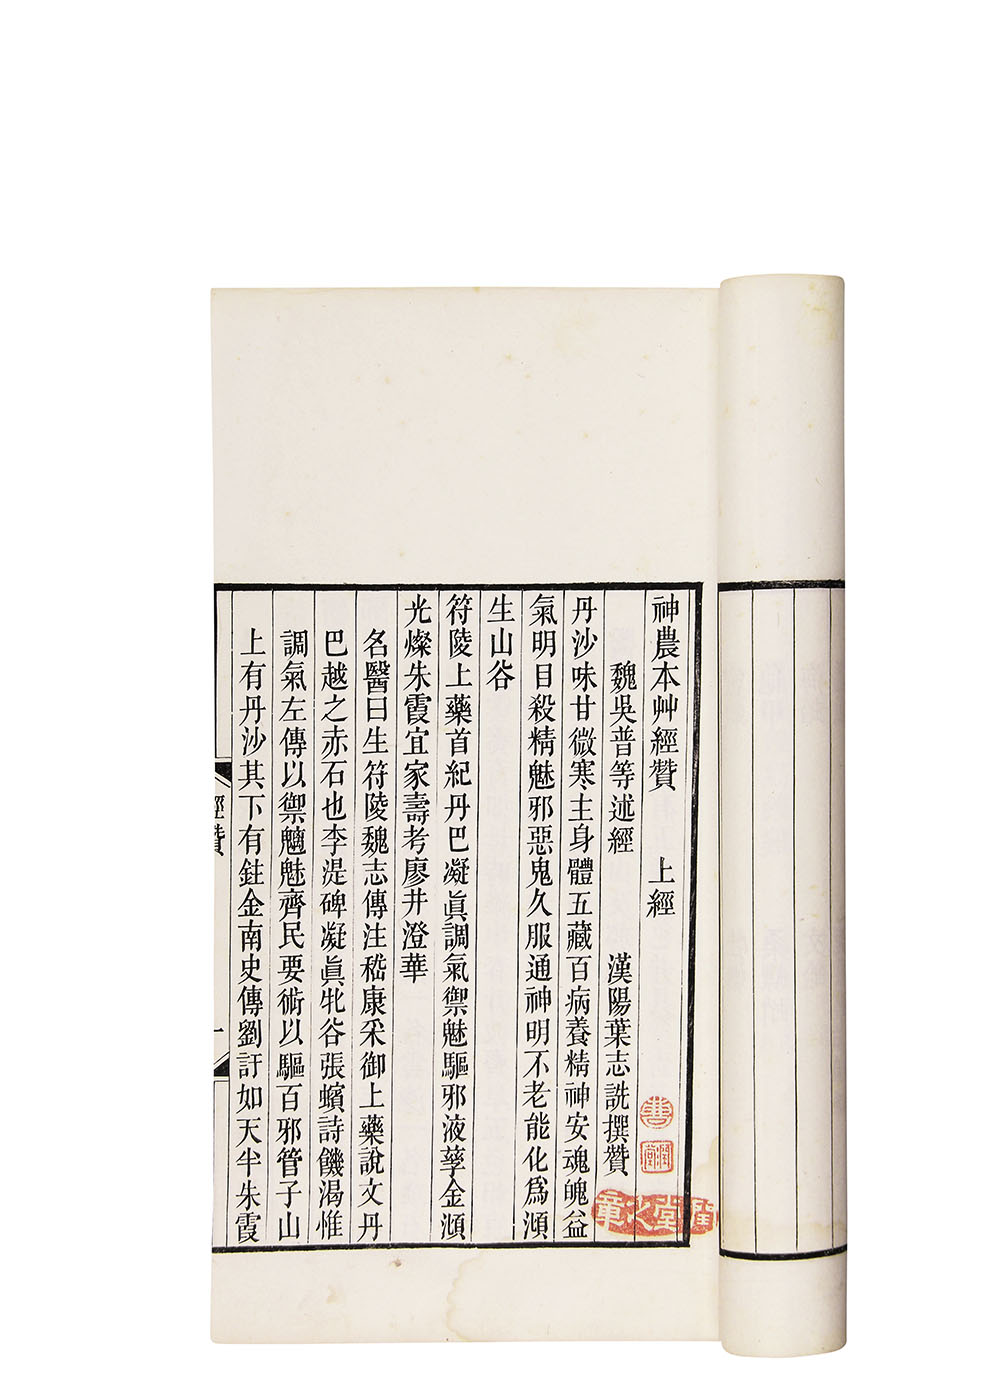 神農本艸經贊　上經
魏吳普等述經　漢陽葉志詵撰贊
丹沙味甘微寒主身體五藏百病養精神安魂魄益
氣明目殺精魅邪惡鬼久服通神明不老能化為澒
生山谷
符陵上藥首紀丹巴凝眞調氣禦魅驅邪液孳金澒
光燦朱霞宜家壽考廖井澄華
名醫曰生符陵魏志傳注嵇康采御上藥說文丹
巴越之赤石也李湜碑凝眞牝谷張蠙詩饑渴惟
調氣左傳以禦魑魅齊民要術以驅百邪管子山
上有丹沙其下有鉒金南史傳劉訏如天半朱霞
經贊
一